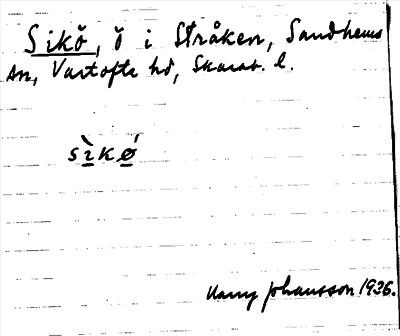 Sikö, ö i Stråken, Sandhems
sn, Vartofta hd, Skarab. l.
sìkǿ
Harry Johansson 1936.